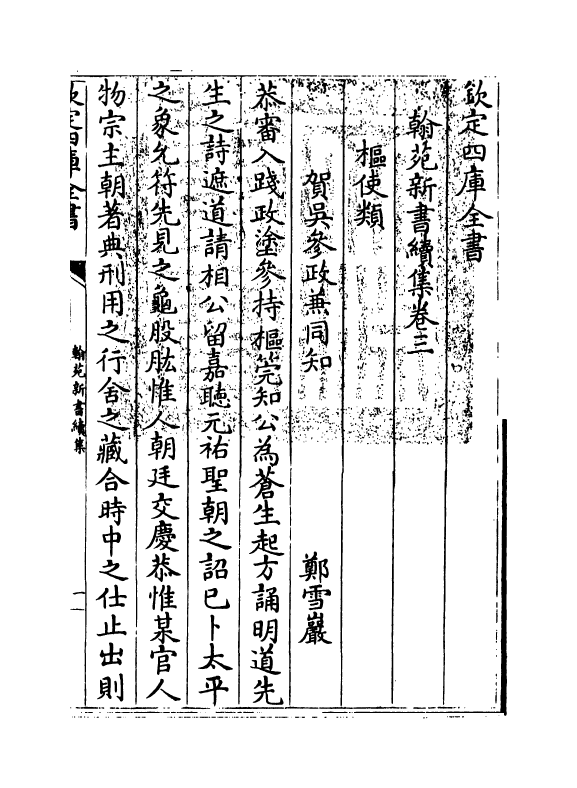 欽定四庫全書
翰苑新書續集卷三
樞使類
賀吳參政兼同知 鄭雪巖
恭審入踐政塗參持樞筦知公為蒼生起方誦明道先
生之詩遮道請相公留嘉聽元祐聖朝之詔已卜太平
之象允符先見之龜股肱惟人朝廷交慶恭惟某官人
物宗主朝著典刑用之行舍之藏合時中之仕止出則
欽定四庫全書
翰苑新書續集
一